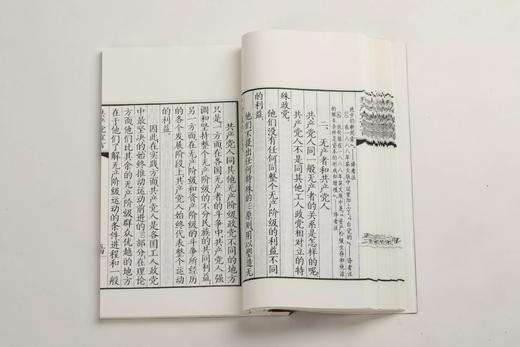 二、无产者和共产党人
共产党人同一般无产者的关系是怎样的呢
共产党人不是同其他工人政党相对立的特
殊政党。
他们没有任何同整个无产阶级的利益不同
的利益。
他们不提出任何特殊的原则用以塑造无
共产党人同其他无产阶级政党不同的地方
只是一方面在各国无产者的斗争中共产党人强
调和坚持整个无产阶级的不分民族的共同利益
另一方面在无产阶级和资产阶级的斗争所经历
的各个发展阶段上共产党人始终代表整个运动
的利益。
因此在实践方面共产党人是各国工人政党
中最坚决的始终推动运动前进的部分在理论
方面他们比其余的无产阶级群众优越的地方
在于他们了解无产阶级运动的条件进程和一般